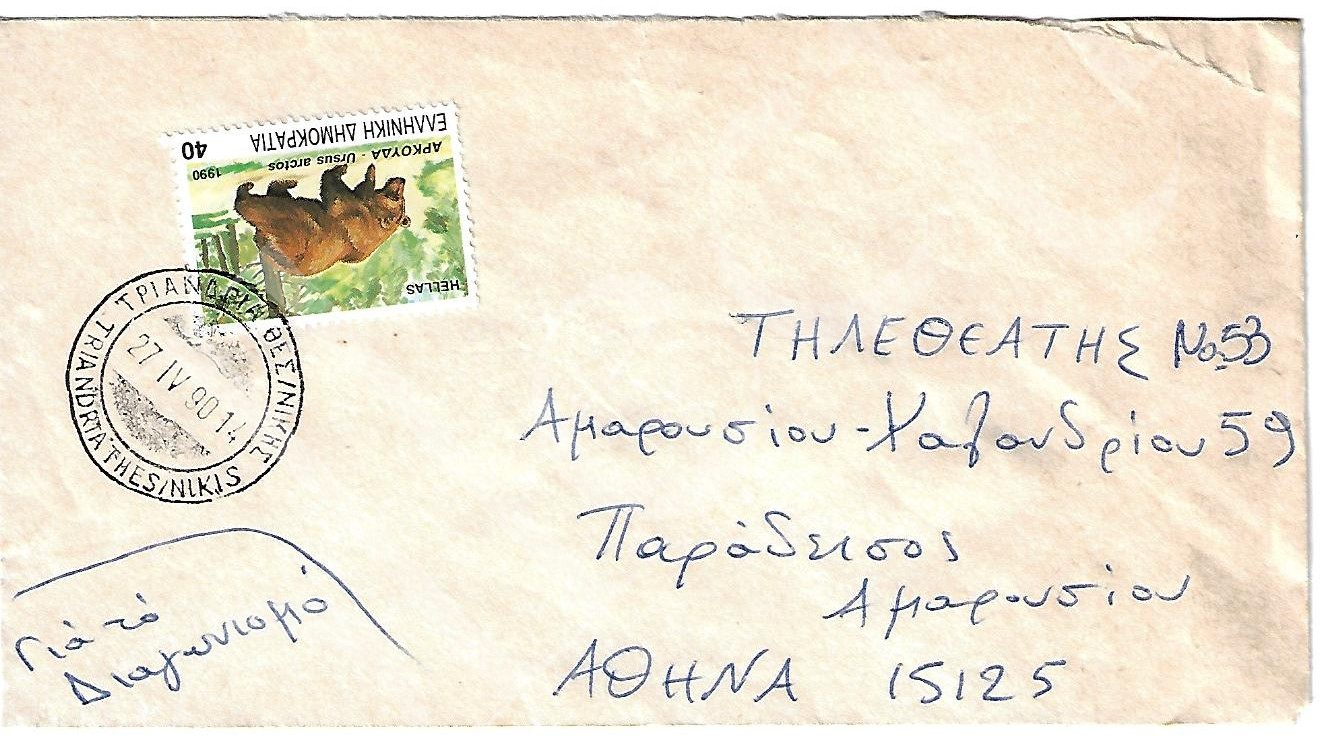 ΕΛΛΗΝΙΚΗ ΔΗΜΟΚΡΑΤΙΑ 40
ΑΡΚΟΥΔΑ - Ursus arctos 1990
HELLAS
ΤΡΙΑΝΔΡΙΑ ΘΕΣ/ΝΙΚΗΣ
27 IV 90 14
TRIANDRIA THES/NIKIS
ΤΗΛΕΘΕΑΤΗΣ No 53
Αμαρουσίου-Χαλανδρίου 59
Παράδεισος
Αμαρουσίου
ΑΘΗΝΑ 15125
Γιά τό
Διαγωνισμό